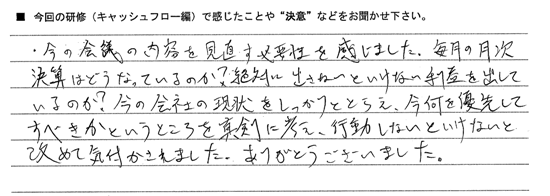 ■ 今回の研修（キャッシュフロー編）で感じたことや“決意”などをお聞かせ下さい。
・今の会議の内容を見直す必要性を感じました。毎月の月次
決算はどうなっているのか？絶対に出さないといけない利益を出して
いるのか？今の会社の現状をしっかりととらえ、今何を優先して
すべきかというところを真剣に考え、行動しないといけないと
改めて気付かされました。ありがとうございました。